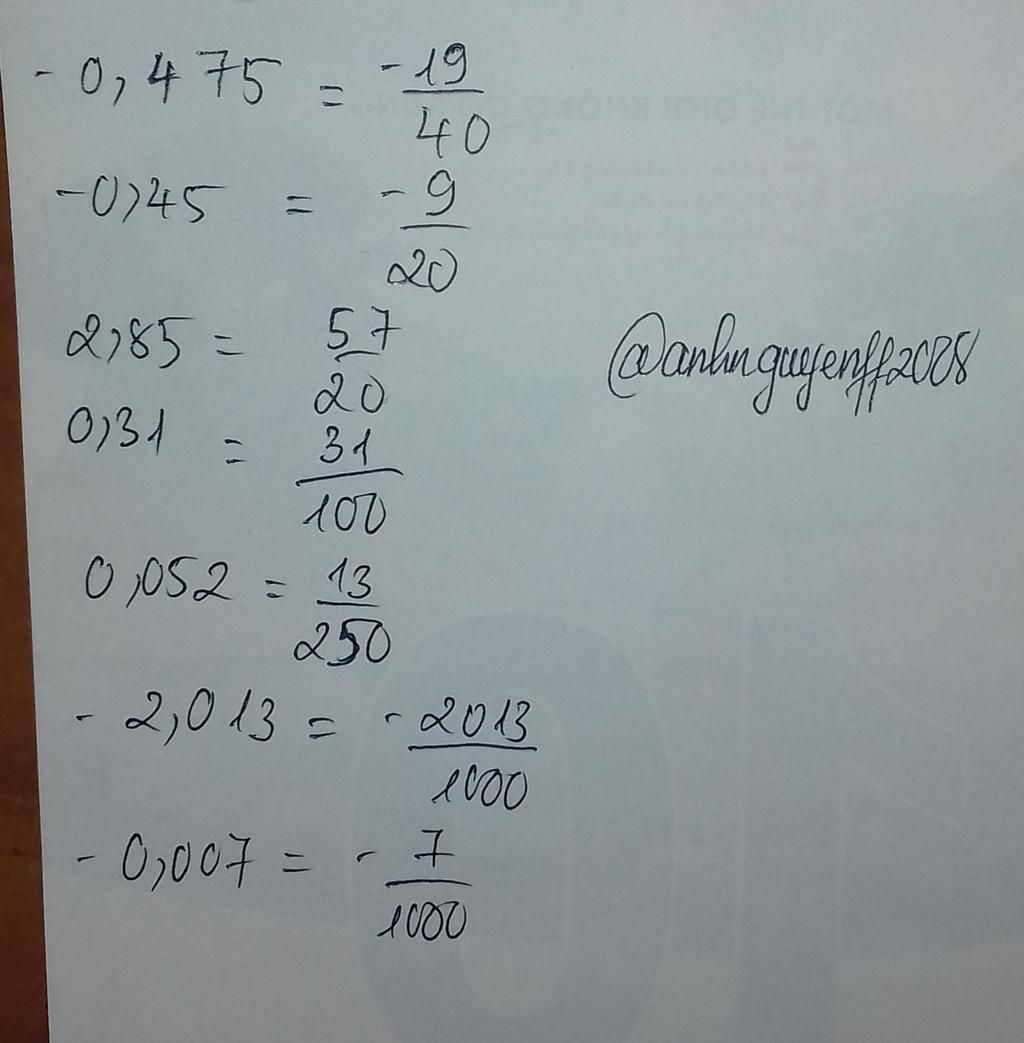 -0,475 = -19/40
-0,45 = -9/20
2,85 = 57/20
@anhnguyenff2008
0,31 = 31/100
0,052 = 13/250
-2,013 = -2013/1000
-0,007 = -7/1000